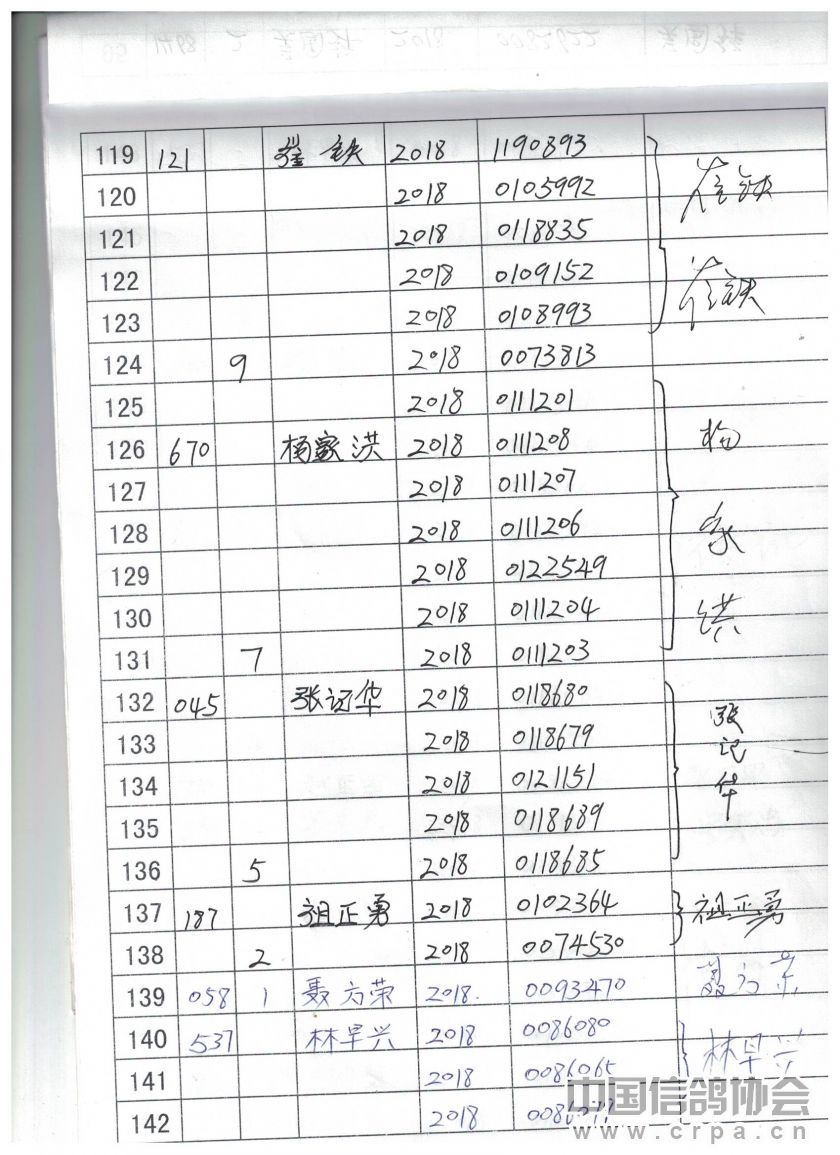 119 121 崔铁 2018 1190893 崔铁
120 2018 0105992
121 2018 0118835
122 2018 0109152 崔铁
123 2018 0108993
124 9 2018 0073813
125 2018 0111201
126 670 杨家洪 2018 0111208 杨
127 2018 0111207
128 2018 0111206 家
129 2018 0122549
130 2018 0111204 洪
131 7 2018 0111203
132 045 张记华 2018 0118680 张
133 2018 0118679 记
134 2018 0121151 华
135 2018 0118689
136 5 2018 0118685
137 187 祖正勇 2018 0102364 祖正勇
138 2 2018 0074530
139 058 1 聂方荣 2018. 0093470 聂方荣
140 537 林早兴 2018 0086080 林早兴
141 2018 0086065
142 2018
中国信鸽协会
www.crpa.cn